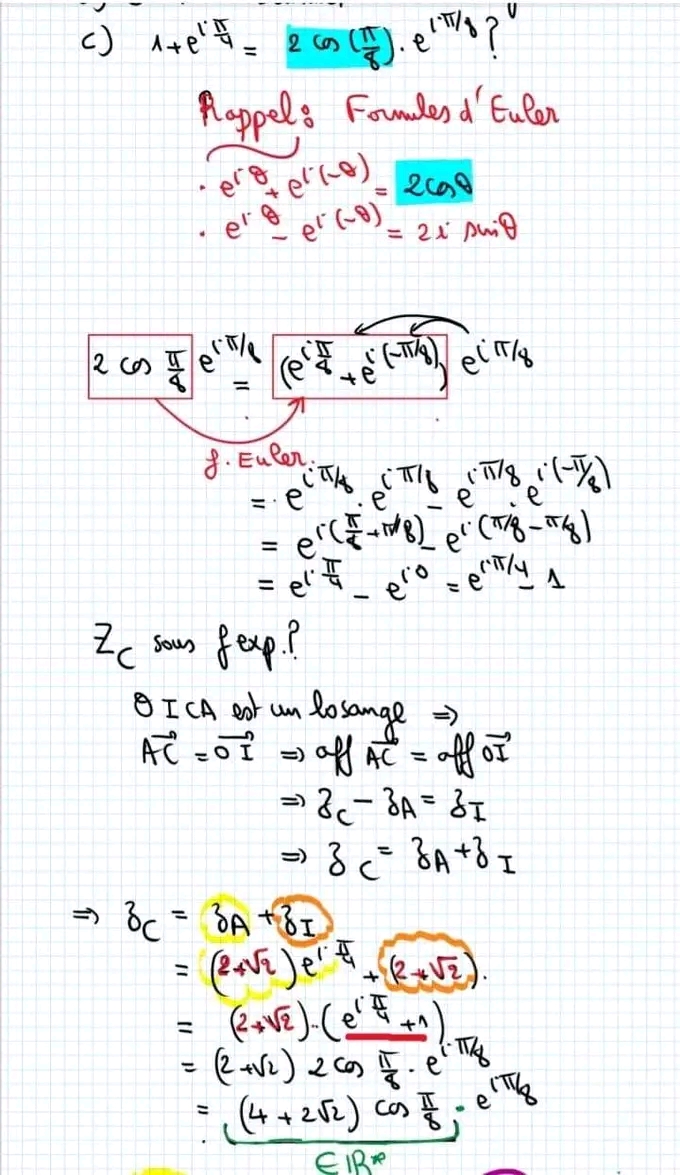 c) 1+e^{iπ/4} = 2 cos (π/8) . e^{iπ/8} ?
Rappel : Formules d'Euler
. e^{iθ} + e^{i(-θ)} = 2cosθ
. e^{iθ} - e^{i(-θ)} = 2i sinθ
2 cos π/8 e^{iπ/8} = (e^{iπ/8} + e^{i(-π/8)}) e^{iπ/8}
f. Euler.
= e^{iπ/8} . e^{iπ/8} - e^{iπ/8} . e^{i(-π/8)}
= e^{i(π/8+π/8)} - e^{i(π/8-π/8)}
= e^{iπ/4} - e^{i0} = e^{iπ/4} - 1
Z_C sous f exp. ?
OICA est un losange ⇒
AC⃗ = OI⃗ ⇒ aff AC⃗ = aff OI⃗
⇒ z_C - z_A = z_I
⇒ z_C = z_A + z_I
⇒ z_C = z_A + z_I
= (2+√2) e^{iπ/4} + (2+√2).
= (2+√2).(e^{iπ/4} + 1)
= (2+√2) 2 cos π/8 . e^{iπ/8}
= (4+2√2) cos π/8 . e^{iπ/8}
∈ IR*